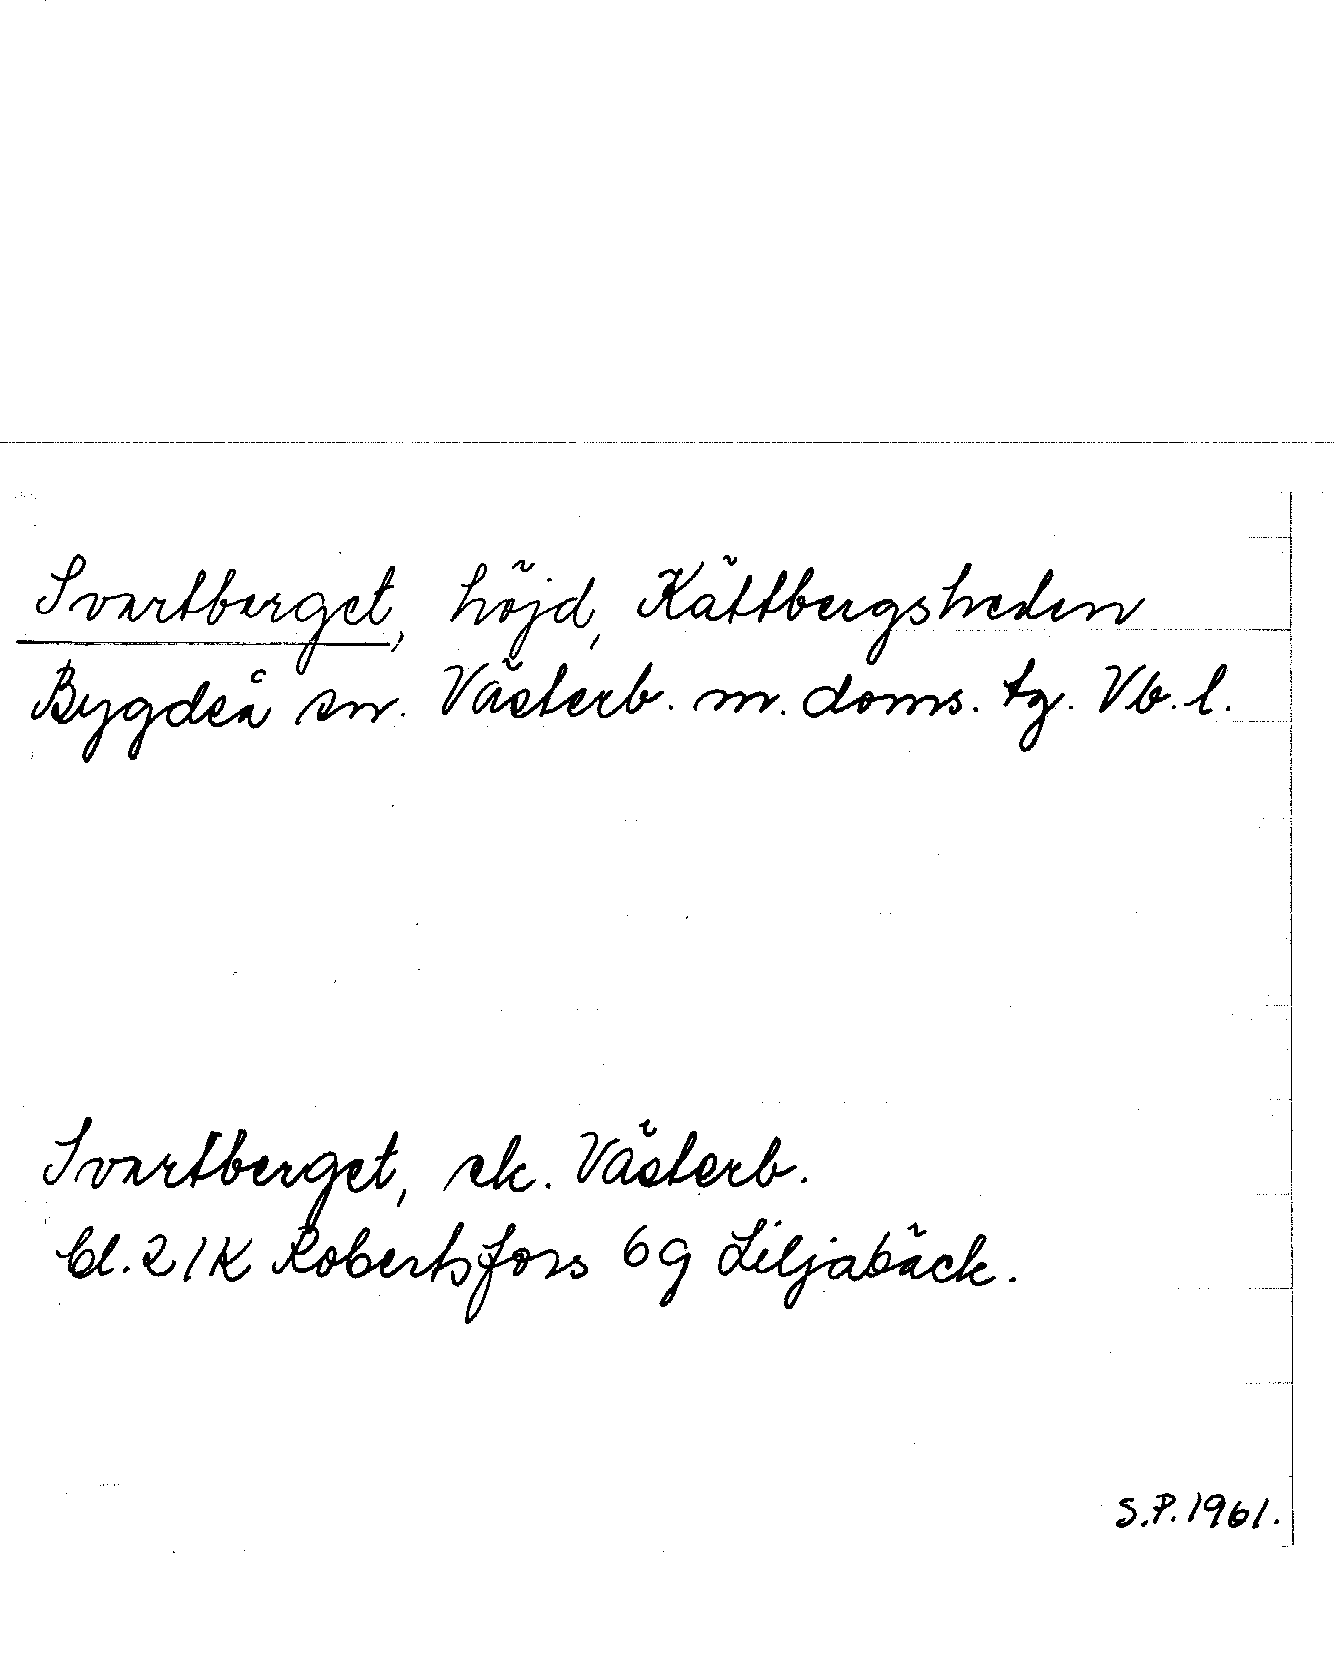 Svartberget, höjd, Kättbergsheden
Bygdeå sn. Västerb. m. doms. tg. Vb. l.
Svartberget, ek. Västerb.
bl. 21K Robertsfors 6 g Liljabäck.
S.P. 1961.